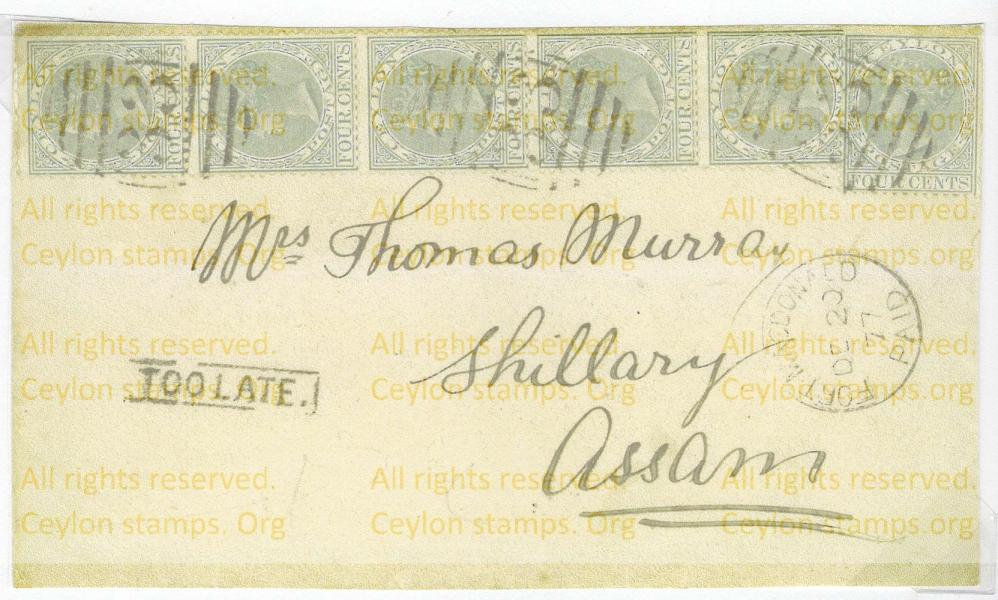 CEYLON POSTAGE FOUR CENTS
CEYLON POSTAGE FOUR CENTS
CEYLON POSTAGE FOUR CENTS
CEYLON POSTAGE FOUR CENTS
CEYLON POSTAGE FOUR CENTS
CEYLON POSTAGE
FOUR CENTS
All rights reserved. All rights reserved. All rights reserved.
Ceylon stamps. Org Ceylon stamps. Org Ceylon stamps. Org
All rights reserved. All rights reserved. All rights reserved.
Mrs Thomas Murray
Ceylon stamps. org Ceylon stamps. org Ceylon stamps. org
FORT MACDONALD
DE 20
77
PAID
All rights reserved. All rights reserved. All rights reserved.
Shillary
TOO LATE.
Ceylon stamps. Org Ceylon stamps. Org Ceylon stamps. Org
Assam
All rights reserved. All rights reserved. All rights reserved.
Ceylon stamps. Org Ceylon stamps. Org Ceylon stamps. org